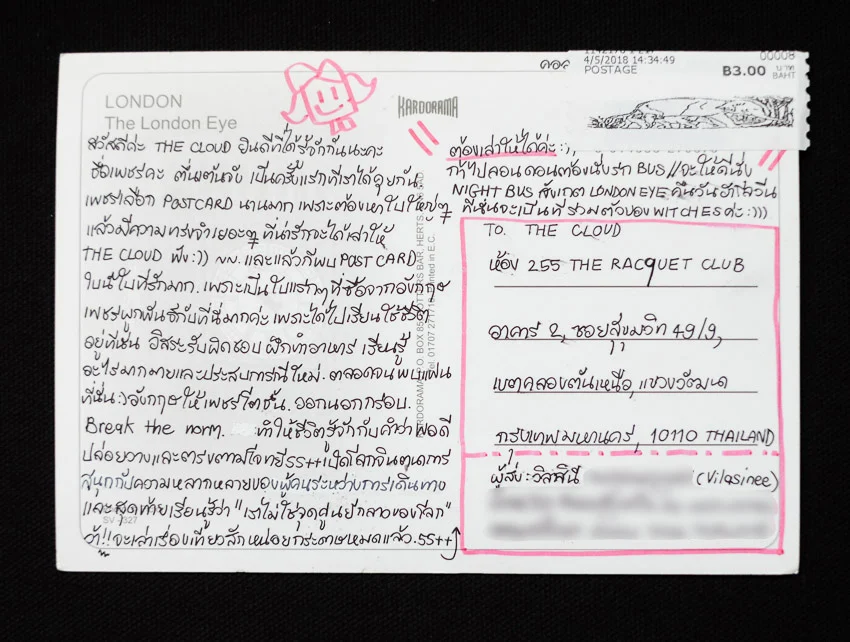 LONDON
The London Eye
KARDORAMA
สวัสดีค่ะ THE CLOUD ยินดีที่ได้รู้จักกันนะคะ
ชื่อเพชรค่ะ ตื่นเต้นจัง เป็นครั้งแรกที่เราได้คุยกัน
เพชรเลือก POSTCARD นานมาก เพราะต้องหาใบใหญ่ๆ
แล้วมีความทรงจำเยอะๆ ที่น่ารักจะได้เล่าให้
THE CLOUD ฟัง:)) และแล้วก็พบ POST CARD
ใบนี้ใบที่รักมาก. เพราะเป็นใบแรกๆ ที่ซื้อจากอังกฤษ
เพชรผูกพันธ์กับที่นี่มากค่ะ เพราะได้ไปเรียนใช้ชีวิต
อยู่ที่นั่น อิสระรับผิดชอบ ฝึกทำอาหาร เรียนรู้
อะไรมากมายและประสบการณ์ใหม่. ตลอดจนพบแฟน
ที่นั่น:) อังกฤษให้เพชรโตขึ้น. ออกนอกกรอบ.
Break the norm. ทำให้ชีวิตรู้จักกับคำว่าพอดี
ปล่อยวางและตรงตามใจทยี55++
สนุกกับความหลากหลายของผู้คนระหว่างการเดินทาง
และสุดท้ายเรียนรู้ว่า "เราไม่ใช่จุดศูนย์กลางของโลก"
ว้า!! จะเล่าเรื่องเที่ยวสักหน่อยกระดาษหมดแล้ว. 55++
SV 7327
4/5/2018 14:34:49
POSTAGE
00008
฿3.00 บาท
BAHT
ต้องเล่าให้ได้ค่ะ :,)
ถ้าไปลอนดอนต้องนั่งรถ BUS // จะให้ดีนั่ง
NIGHT BUS สังเกต LONDON EYE คืนวันฮัลโลวีน
ที่นั่นจะเป็นที่รวมตัวของ WITCHES ค่ะ :)))
TO. THE CLOUD
ห้อง 255 THE RACQUET CLUB
อาคาร 2, ซอยสุขุมวิท 49/9,
เขตคลองตันเหนือ, แขวงวัฒนา
กรุงเทพมหานคร, 10110 THAILAND
ผู้ส่ง: วิลาสินี (Vilasinee)